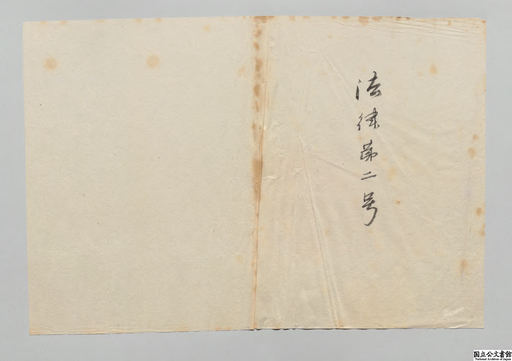 法律第二号
国立公文書館
National Archives of Japan